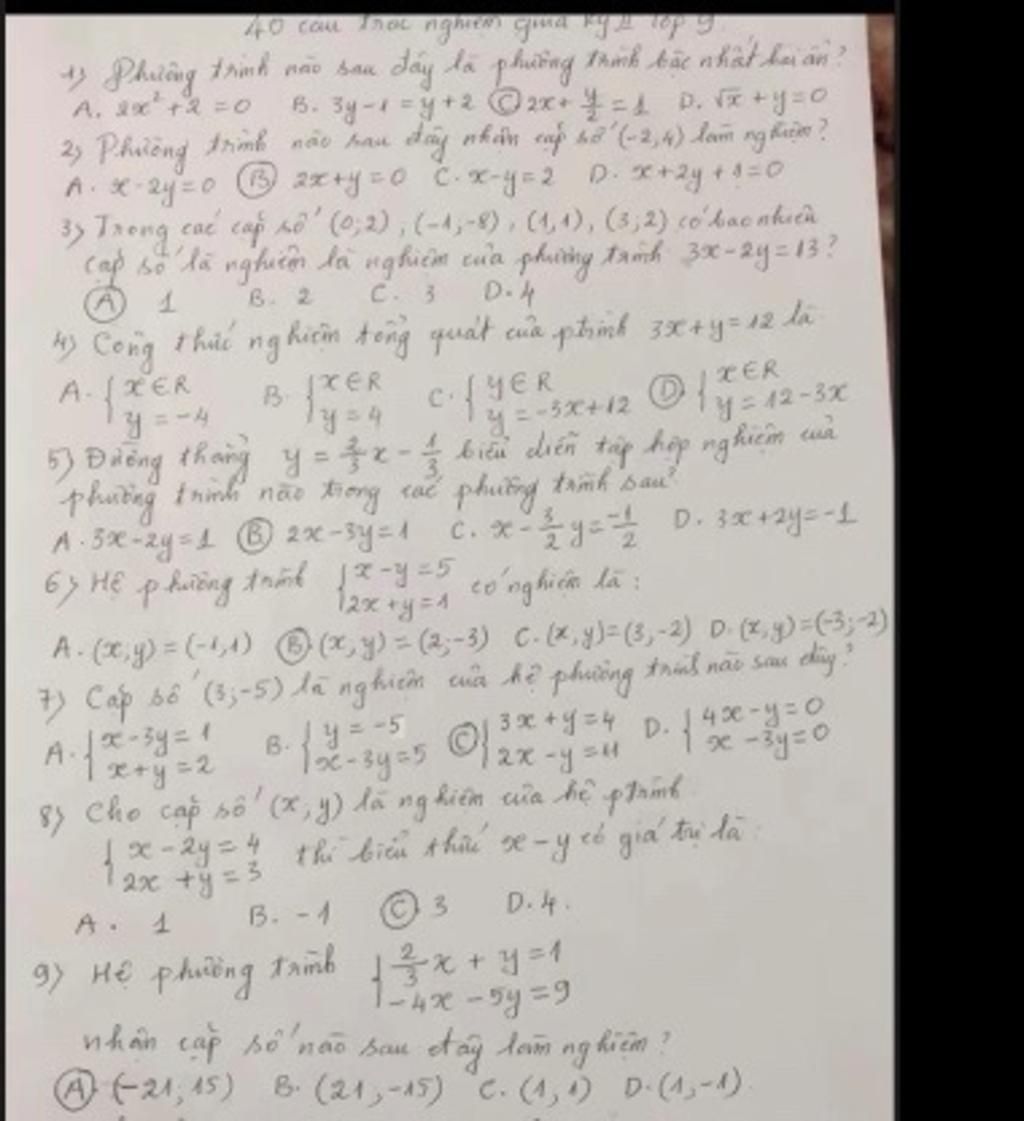 40 câu trắc nghiệm giữa kỳ II lớp 9
1) Phương trình nào sau đây là phương trình bậc nhất hai ẩn?
A. 2x² + 2 = 0 B. 3y - 1 = y + 2 Ⓒ 2x + y/2 = 1 D. √x + y = 0
2) Phương trình nào sau đây nhận cặp số (-2,4) làm nghiệm?
A. x - 2y = 0 Ⓑ 2x + y = 0 C. x - y = 2 D. x + 2y + 1 = 0
3) Trong các cặp số (0;2), (-1;-8), (1,1), (3;2) có bao nhiêu
cặp số là nghiệm là nghiệm của phương trình 3x - 2y = 13?
Ⓐ 1 B. 2 C. 3 D. 4
4) Công thức nghiệm tổng quát của ptrình 3x + y = 12 là
A. { x ∈ R B. { x ∈ R C. { y ∈ R Ⓓ { x ∈ R
y = -4 y = 4 y = -3x + 12 y = 12 - 3x
5) Đường thẳng y = 2/3 x - 1/3 biểu diễn tập hợp nghiệm của
phương trình nào trong các phương trình sau?
A. 3x - 2y = 1 Ⓑ 2x - 3y = 1 C. x - 3/2 y = -1/2 D. 3x + 2y = -1
6) Hệ phương trình { x - y = 5 có nghiệm là:
2x + y = 1
A. (x,y) = (-1,1) Ⓑ (x,y) = (2;-3) C. (x,y) = (3,-2) D. (x,y) = (-3;-2)
7) Cặp số (3;-5) là nghiệm của hệ phương trình nào sau đây?
A. { x - 3y = 1 B. { y = -5 Ⓒ { 3x + y = 4 D. { 4x - y = 0
x + y = 2 x - 3y = 5 2x - y = 11 x - 3y = 0
8) Cho cặp số (x,y) là nghiệm của hệ ptrình
{ x - 2y = 4 thì biểu thức x - y có giá trị là:
2x + y = 3
A. 1 B. -1 Ⓒ 3 D. 4.
9) Hệ phương trình { 2/3 x + y = 1
-4x - 5y = 9
nhận cặp số nào sau đây làm nghiệm?
Ⓐ (-21; 15) B. (21,-15) C. (1,1) D. (1,-1)